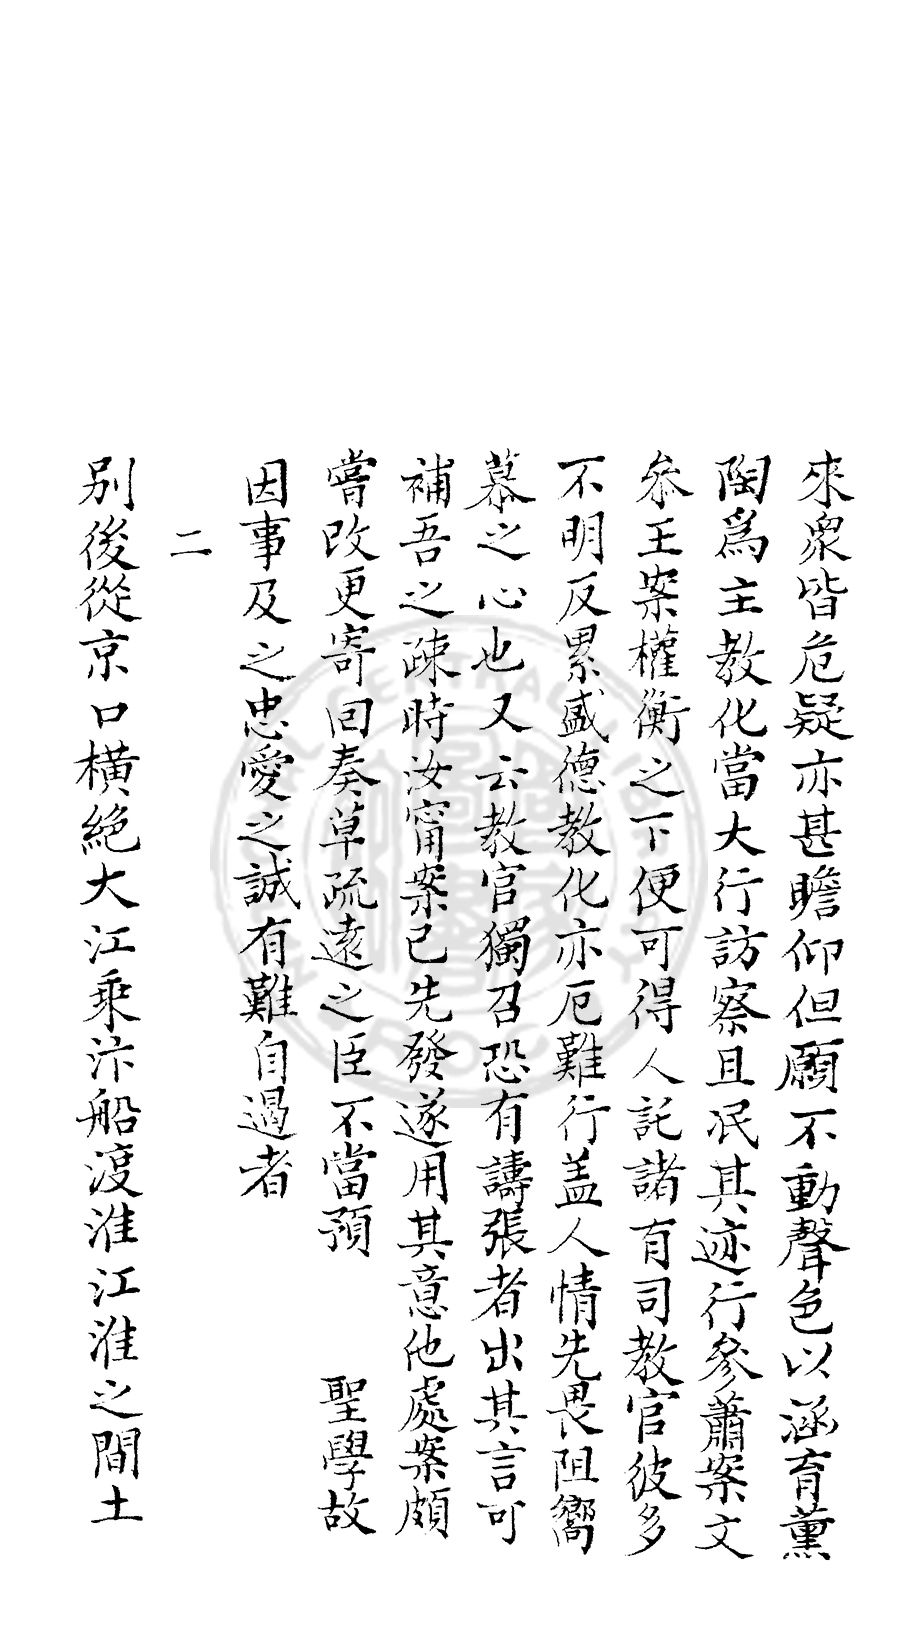 來衆皆危疑亦甚瞻仰但願不動聲色以涵育薰
陶爲主教化當大行訪察且泯其迹行參蕭案文
叅王案權衡之下便可得人託諸有司教官彼多
不明反累盛德教化亦厄難行盖人情先畏阻嚮
慕之心也又云教官獨召恐有譸張者出其言可
補吾之疎時汝甯案已先發遂用其意他處案頗
嘗改更寄回奏草疏遠之臣不當預 聖學故
因事及之忠愛之誠有難自遏者
二
別後從京口橫絶大江乘汴船渡淮江淮之間土